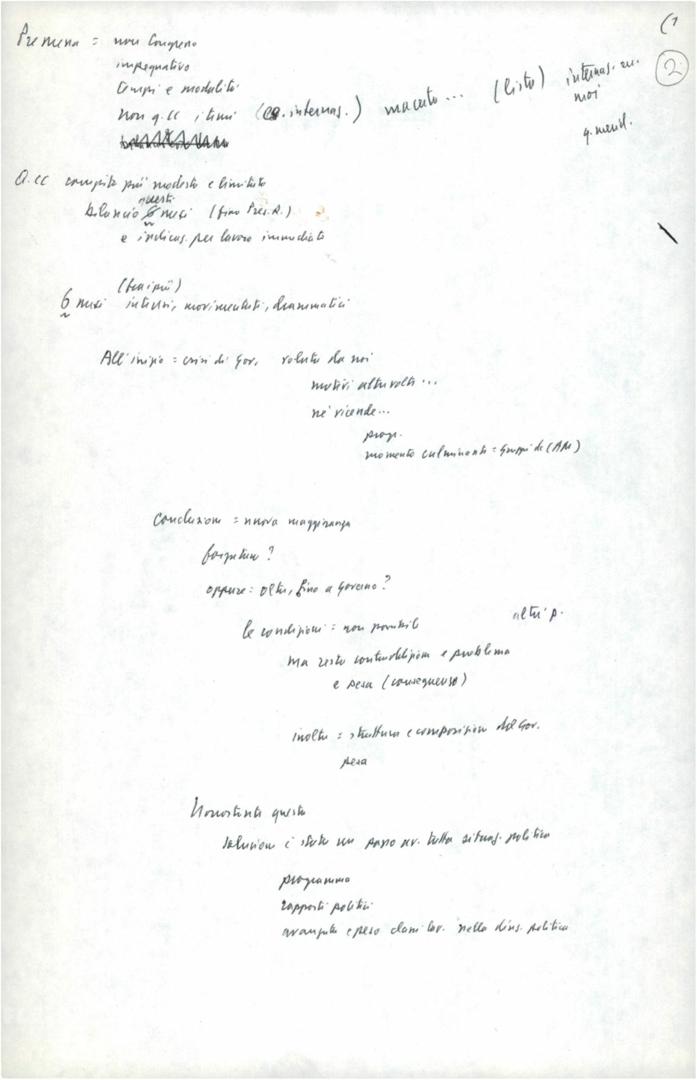 (1
2
Premessa = non Congresso
impegnativo
tempi e modalità
Non q. CC i temi (q. internaz.) ma certo... (listo) internaz. su. noi
q. merid.
Q. CC compito più modesto e limitato
questi
bilancio 6 mesi (fino Pres. R.)
e indicaz. per lavoro immediato
(tra i più)
6 mesi intensi, movimentati, drammatici
All'inizio = crisi di Gov. voluta da noi
motivi altre volte...
né vicende...
prog.
momento culminante = Gruppi dc (AM)
Conclusione = nuova maggioranza
forzatura?
oppure: oltre, fino a Governo?
le condizioni = non possibile altri p.
ma resta contraddizione e problema
e pesa (conseguenze)
inoltre = struttura e composizione del Gov.
pesa
Nonostante questo
soluzione è stata un passo av. tutta situaz. politica
programma
rapporti politici
avanzata e peso classi lav. nella direz. politica